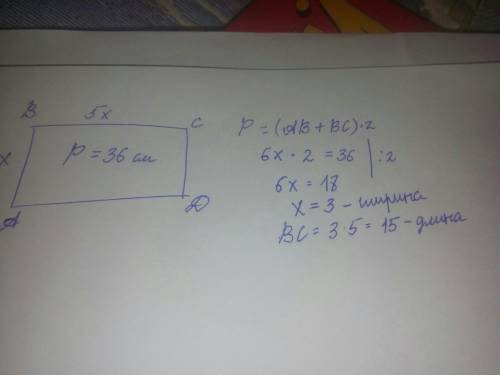 B 5x C
x P = 36 см
A D
P = (AB + BC) · 2
6x · 2 = 36 | : 2
6x = 18
x = 3 – ширина
BC = 3 · 5 = 15 – длина